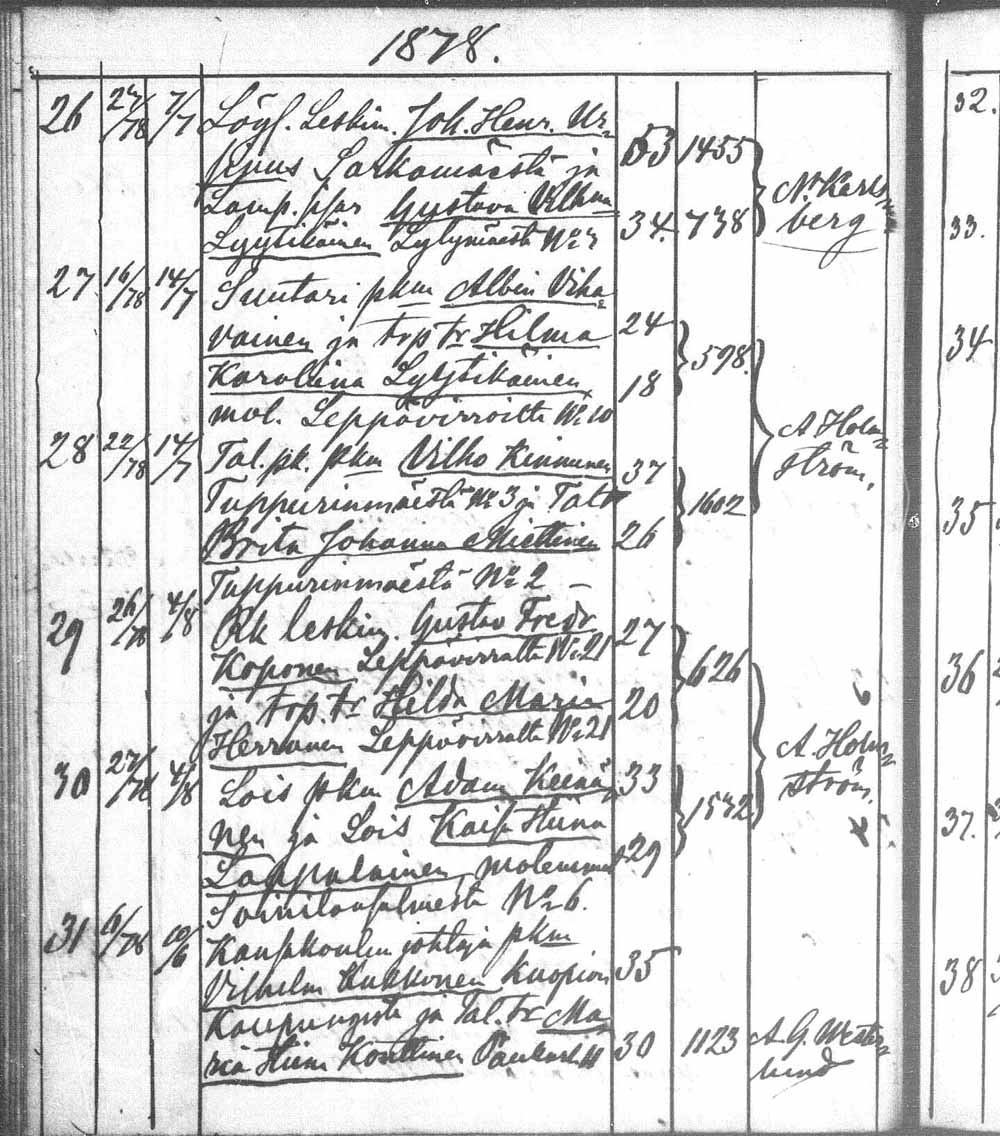 1878.
26 27/78 7/7 Lögf. Leskim. Joh. Henr. Ur-
jenus Sarkamäestä ja 53 1455
Lamp. psar Gustava Vilhma N. Karls-
Lyytikäinen Lylymäestä No 7 34. 738 berg
27 16/78 14/7 Suutari pkm Albin Viha-
vainen ja trp tr Hilma 24
Karoliina Lyytikäinen, 18 598.
mol. Leppävirroilta No 10
28 22/78 14/7 Tal. pk. pkm Vilho Kinnunen 37 A. Holm-
Tuppurinmäestä No 3 ja Taltr 1602 ström.
Brita Johanna Miettinen 26
Tuppurinmäestä No 2 –
29 26/78 4/8 Rk leskim. Gustav Fredr 27
Koponen Leppävirralta No 21 626
ja trp. tr Hilda Maria 20
Herranen Leppävirralta No 21
30 27/78 4/8 Lois pkm Adam Keinä- 33 A. Holm-
nen ja Lois Kaisa Hiina 1532 ström.
Lappalainen, molemmat 29
Soinilansalmesta No 6.
31 6/78 10/6 Kansakoulun johtaja pkm
Vilhelm Kukkonen Kuopion 35
Kaupungista ja Tal. tr Ma-
ria Hiina Konttinen 30 1123 A. G. Wester-
lund
32.
33.
34
35
36
37.
38